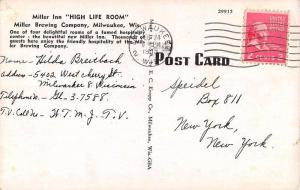 Miller Inn "HIGH LIFE ROOM"
Miller Brewing Company, Milwaukee, Wis.
One of four delightful rooms of a famed hospitality
center - the beautiful new Miller Inn. Thousands of
guests here enjoy the friendly hospitality of the Mil-
ler Brewing Company.
29913
Name - Hilda Breitbach
address - 5402 West chery St.
Milwaukee 8 Wisconsin
Telephone - Gl. 3-7588
Station - W.T.M.J. T.V.
E. C. Kropp Co., Milwaukee, Wis.
POST CARD
Speidel
Box 811
New York,
New York.